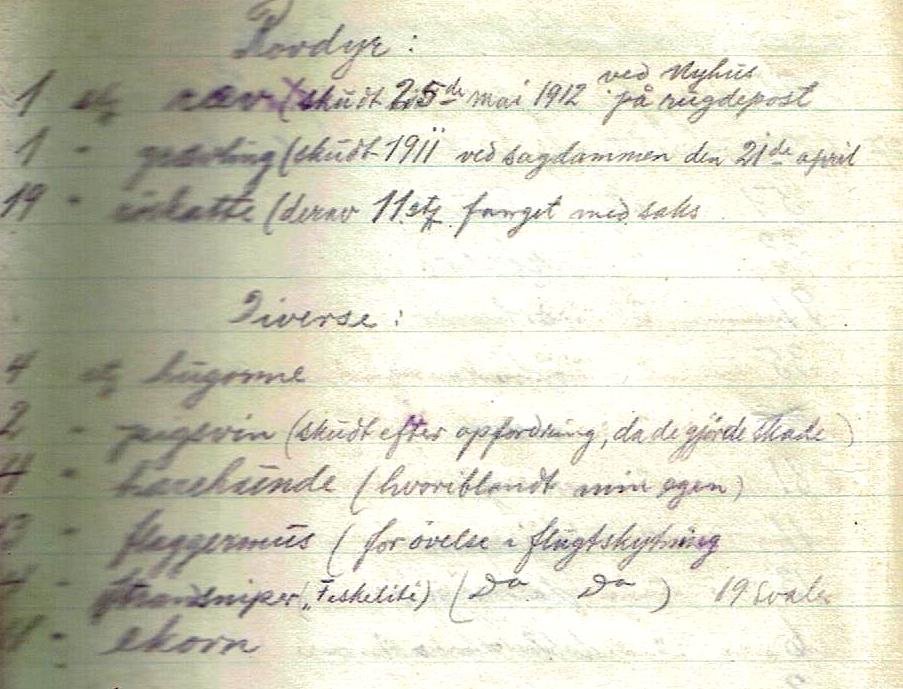 Rovdyr :
1 stk ræv (skudt 25de mai 1912 ved Nyhus på rugdepost
1 " grævling (skudt 1911 ved sagdammen den 21de april
19 " röskatte (derav 11 stk fanget med saks
Diverse :
4 stk hugorme
2 " pigsvin (skudt efter opfordring, da de gjörde skade)
4 " harehunde (hvoriblandt min egen)
3 " flaggermus (for övelse i flugtskytning
" strandsniper („Fiskeliti) (Do Do) 19 Svaler
" ekorn